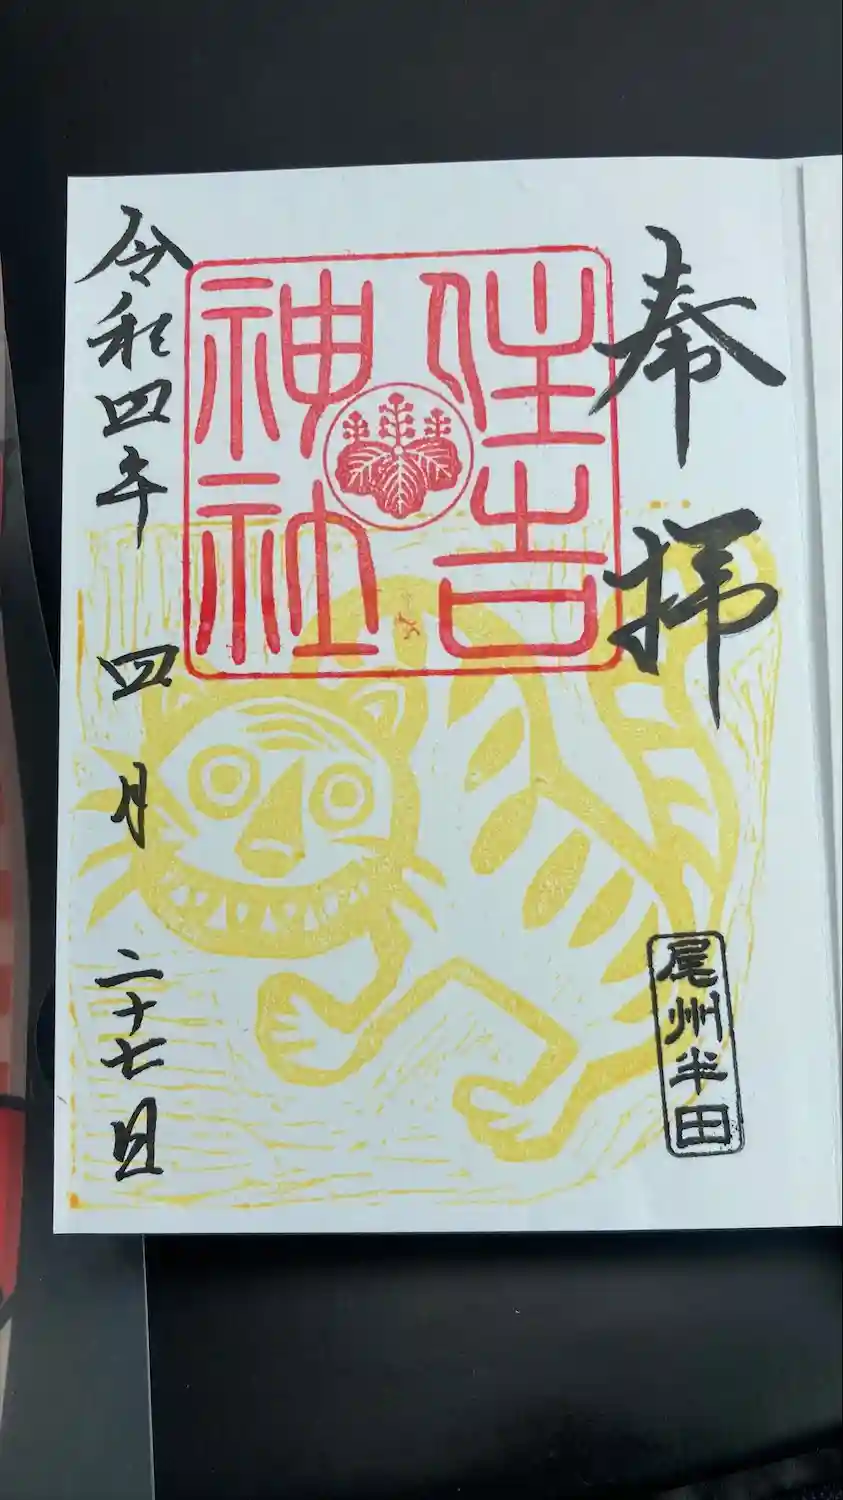 奉拝
住吉
神社
尾州半田
令和四年四月二十七日